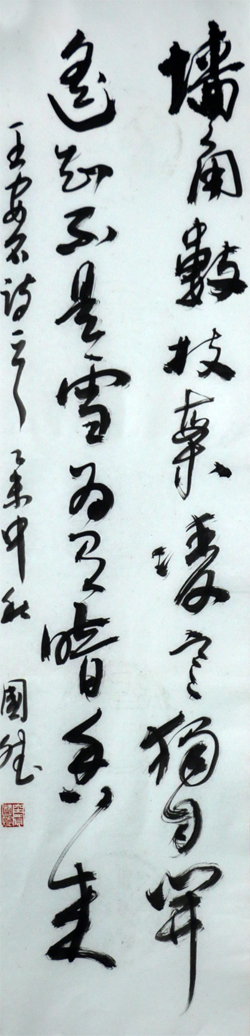 墻角數枝梅凌寒獨自開
遙知不是雪為有暗香來
王安石詩 乙未中秋 國